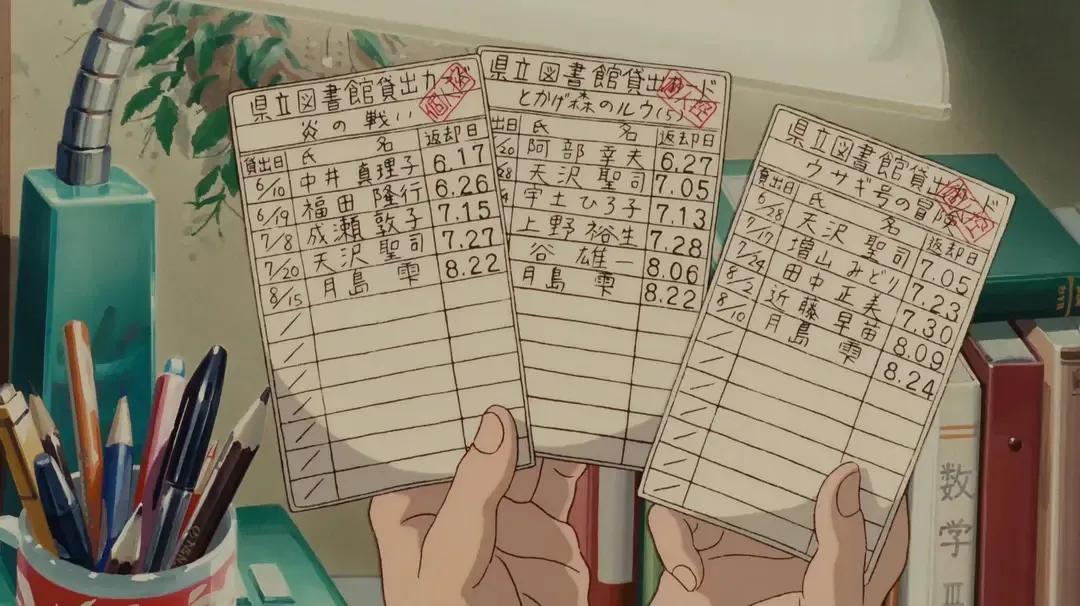 県立図書館貸出カード
炎の戦い
貸出日 氏 名 返却日
6/10 中井真理子 6.17
6/19 福田隆行 6.26
7/8 成瀬敦子 7.15
7/20 天沢聖司 7.27
8/15 月島雫 8.22
県立図書館貸出カード
とかげ森のルウ(5)
出日 氏 名 返却日
20 阿部幸夫 6.27
28 天沢聖司 7.05
4 宇土ひろ子 7.13
上野裕生 7.28
谷雄一 8.06
月島雫 8.22
県立図書館貸出カード
ウサギ号の冒険
貸出日 氏 名 返却日
6/28 天沢聖司 7.05
7/17 増山みどり 7.23
7/24 田中正美 7.30
8/2 近藤早苗 8.09
8/10 月島雫 8.24
数学II